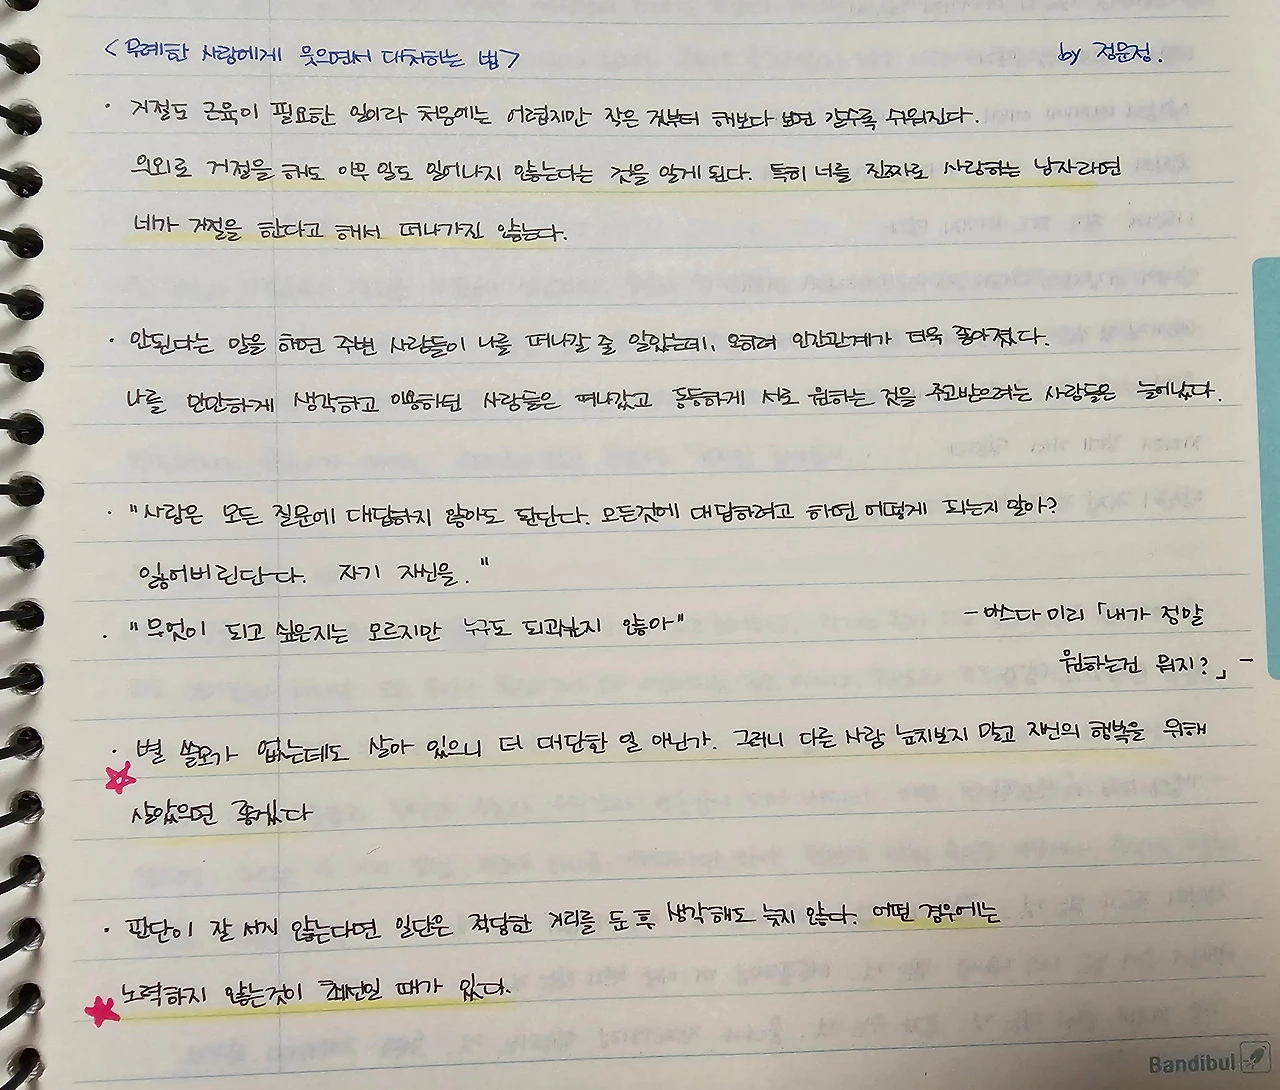 <무례한 사람에게 웃으면서 대처하는 법> by 정문정.
· 거절도 근육이 필요한 일이라 처음에는 어렵지만 작은 것부터 해보다 보면 갈수록 쉬워진다.
의외로 거절을 해도 아무 일도 일어나지 않는다는 것을 알게 된다. 특히 너를 진짜로 사랑하는 남자라면
네가 거절을 한다고 해서 떠나가진 않는다.
· 안된다는 말을 하면 주변 사람들이 나를 떠나갈 줄 알았는데, 오히려 인간관계가 더욱 좋아졌다.
나를 만만하게 생각하고 이용하던 사람들은 떠나갔고 동등하게 서로 원하는 것을 주고받으려는 사람들은 늘어났다.
· "사람은 모든 질문에 대답하지 않아도 된단다. 모든것에 대답하려고 하면 어떻게 되는지 알아?
잃어버린단다. 자기 자신을."
· "무엇이 되고 싶은지는 모르지만 누구도 되고싶지 않아"
- 마스다 미리 「내가 정말
원하는건 뭐지?」 -
· 별 쓸모가 없는데도 살아 있으니 더 대단한 일 아닌가. 그러니 다른 사람 눈치보지 말고 자신의 행복을 위해
살았으면 좋겠다
· 판단이 잘 서지 않는다면 일단은 적당한 거리를 둔 후 생각해도 늦지 않다. 어떤 경우에는
노력하지 않는것이 최선일 때가 있다.
Bandibul